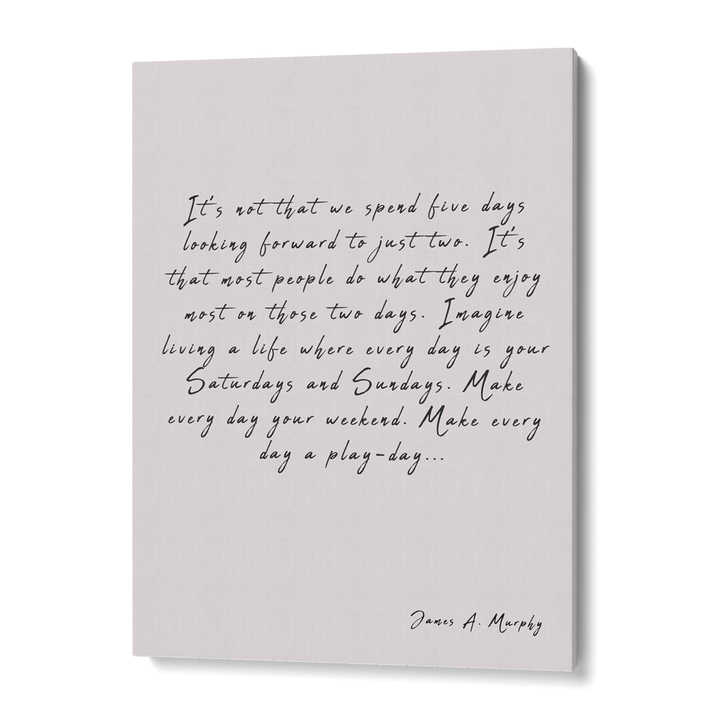 It's not that we spend five days
looking forward to just two. It's
that most people do what they enjoy
most on those two days. Imagine
living a life where every day is your
Saturdays and Sundays. Make
every day your weekend. Make every
day a play-day...
James A. Murphy